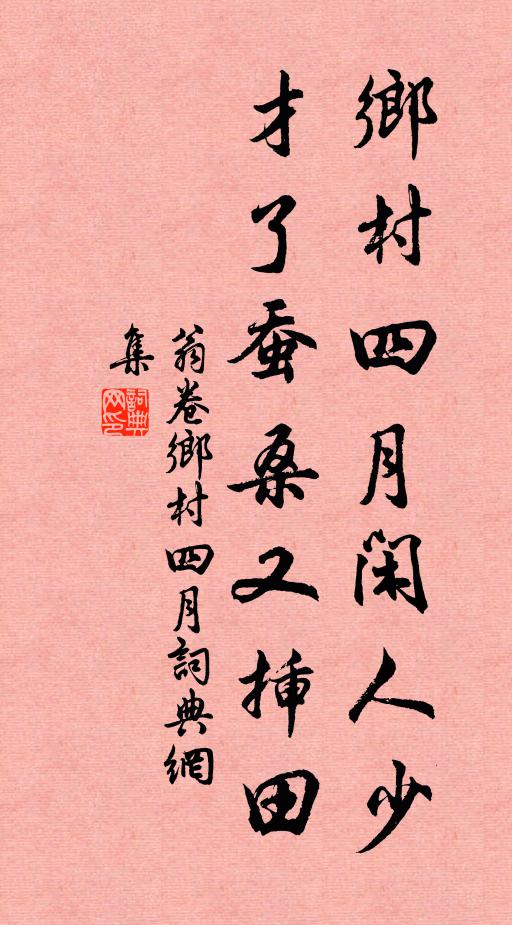 鄉村四月閑人少
才了蚕桑又插田
翁卷鄉村四月詞典網
集
詞典
网印